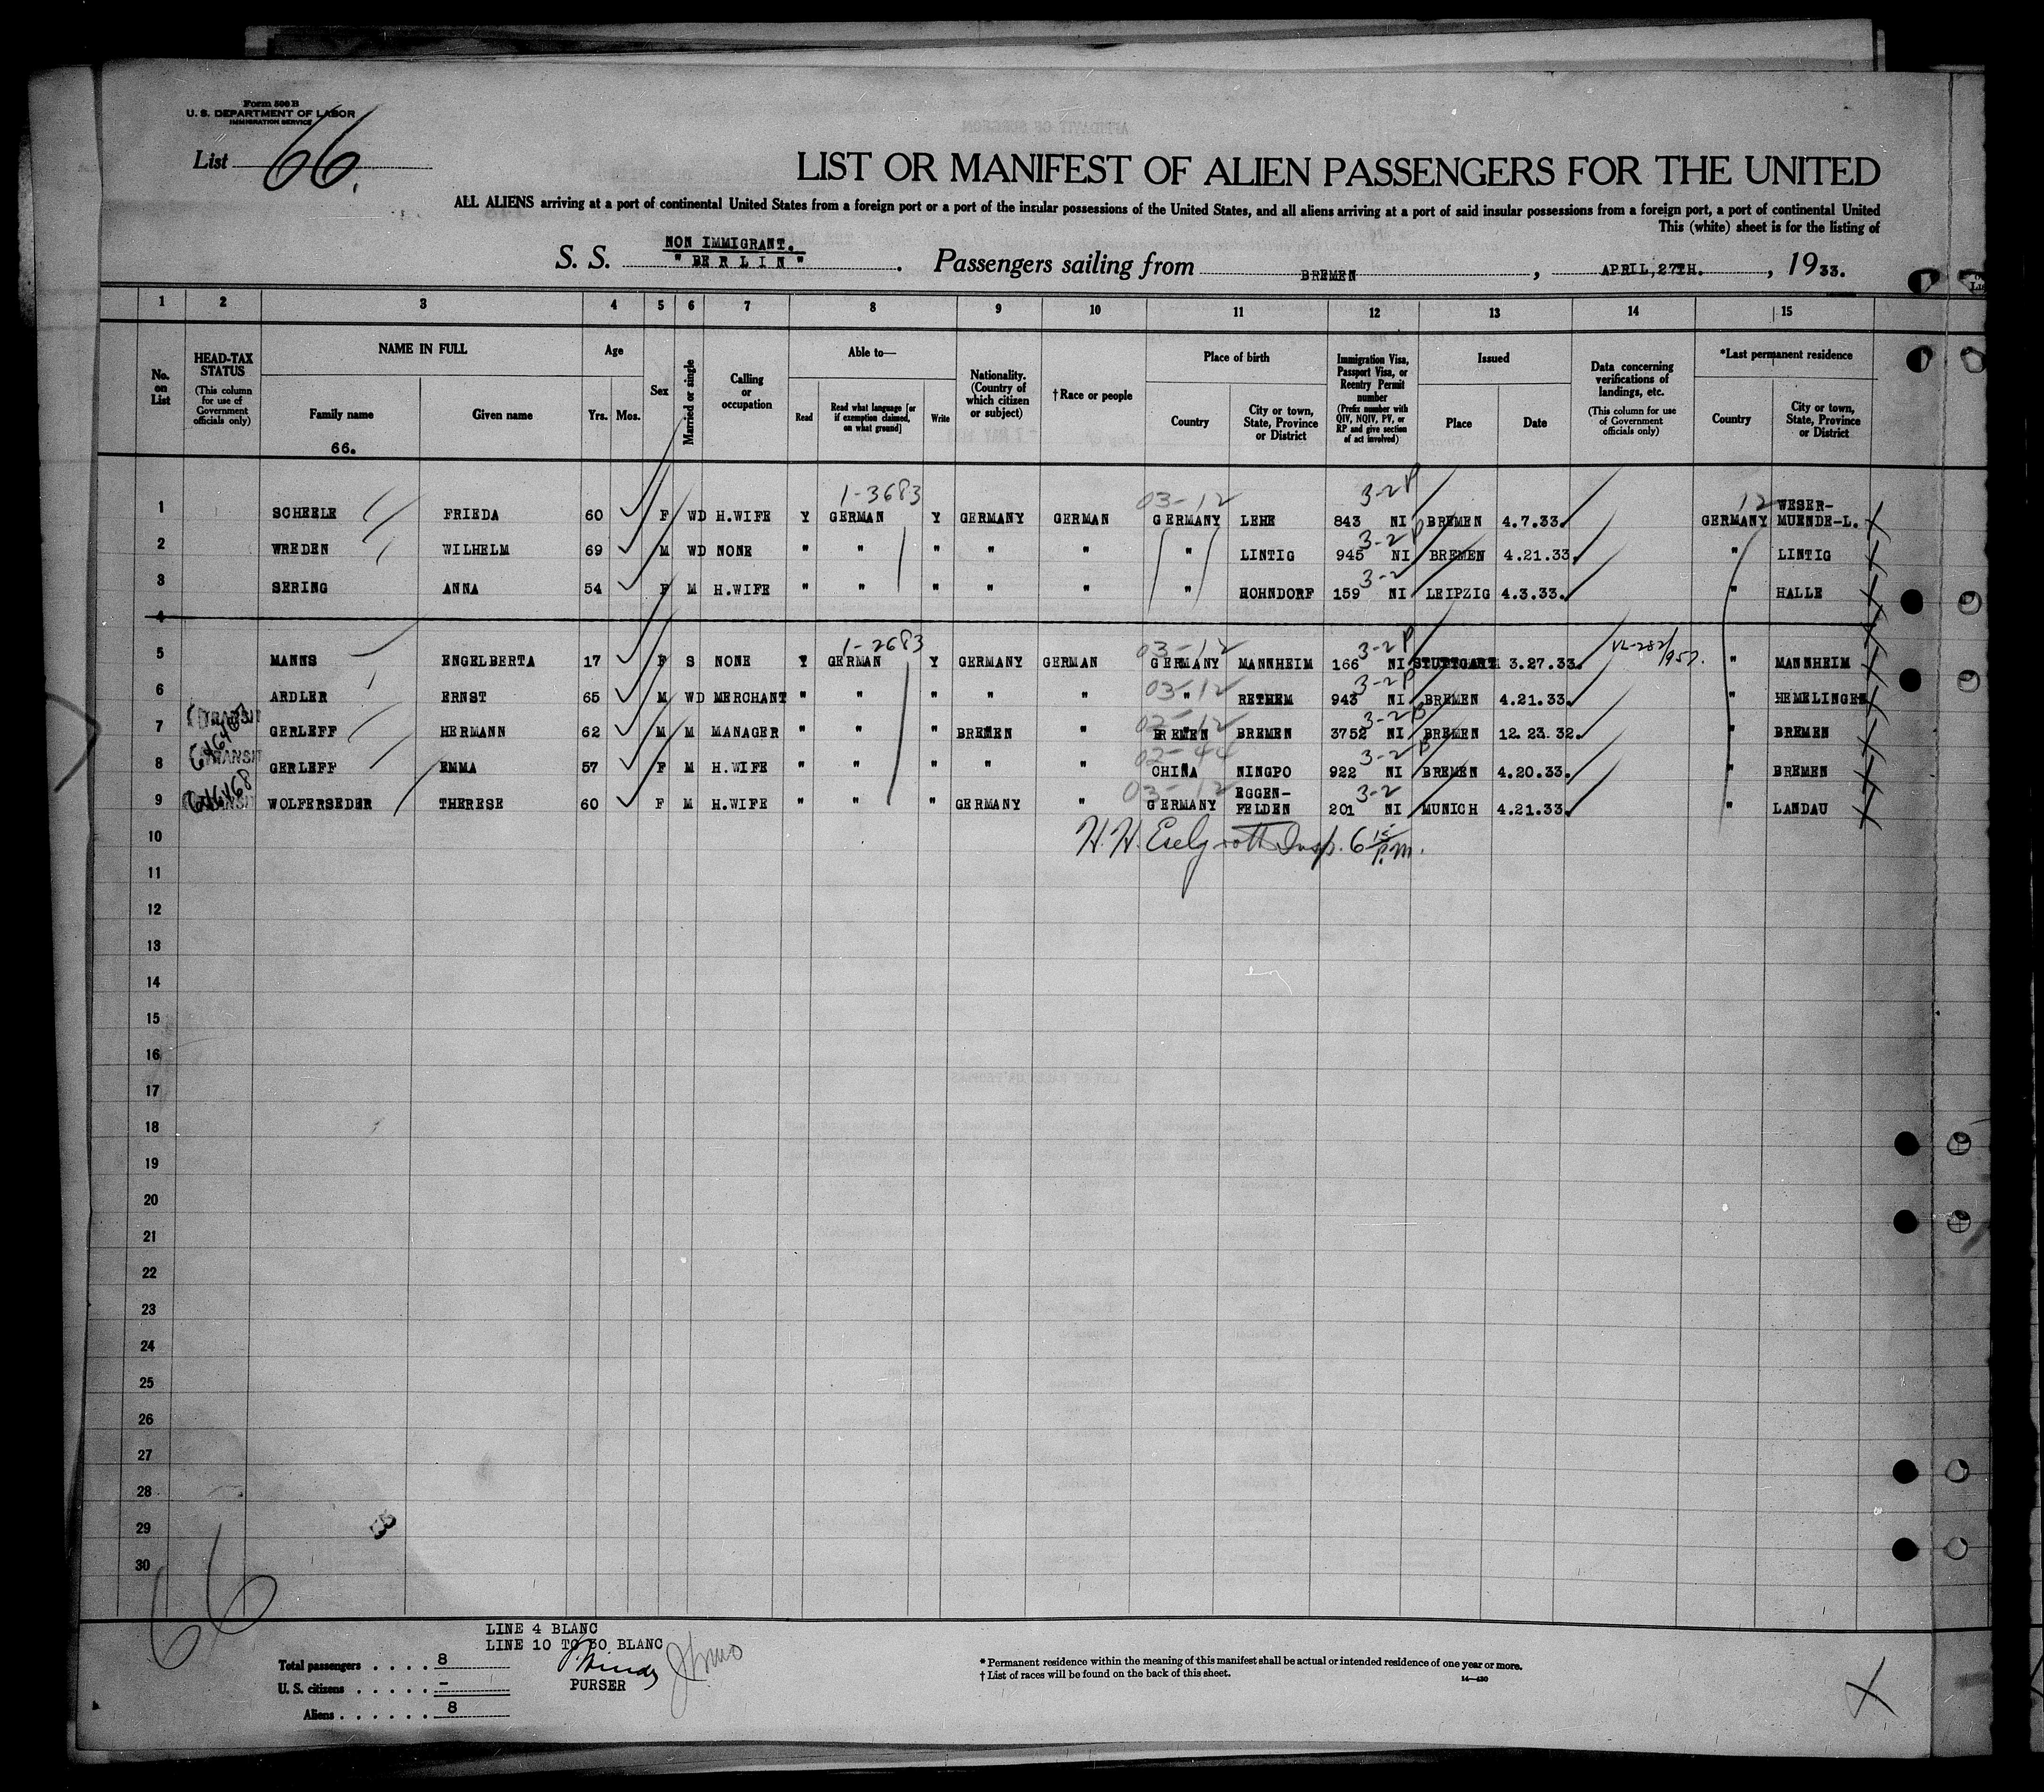 Form 500 B
U. S. DEPARTMENT OF LABOR
IMMIGRATION SERVICE
List 66.
LIST OR MANIFEST OF ALIEN PASSENGERS FOR THE UNITED
ALL ALIENS arriving at a port of continental United States from a foreign port or a port of the insular possessions of the United States, and all aliens arriving at a port of said insular possessions from a foreign port, a port of continental United
This (white) sheet is for the listing of
NON IMMIGRANT.
S. S. "BERLIN". Passengers sailing from BREMEN, APRIL,27TH., 1933.
1 2 3 4 5 6 7 8 9 10 11 12 13 14 15
No. on List
HEAD-TAX STATUS (This column for use of Government officials only)
NAME IN FULL
Family name Given name
66.
Age
Yrs. Mos.
Sex
Married or single
Calling or occupation
Able to—
Read Read what language [or if exemption claimed, on what ground] Write
Nationality. (Country of which citizen or subject)
†Race or people
Place of birth
Country City or town, State, Province or District
Immigration Visa, Passport Visa, or Reentry Permit number (Prefix number with QIV, NQIV, PV, or RP and give section of act involved)
Issued
Place Date
Data concerning verifications of landings, etc. (This column for use of Government officials only)
*Last permanent residence
Country City or town, State, Province or District
1-3683 03-12 3-2P 12
1 SCHEELE FRIEDA 60 F WD H.WIFE Y GERMAN Y GERMANY GERMAN GERMANY LEHE 843 NI BREMEN 4.7.33. GERMANY WESER-MUENDE-L.
3-2P
2 WREDEN WILHELM 69 M WD NONE " " " " " " LINTIG 945 NI BREMEN 4.21.33. " LINTIG
3-2
3 SERING ANNA 54 F M H.WIFE " " " " " " HOHNDORF 159 NI LEIPZIG 4.3.33. " HALLE
4
1-2683 03-12 3-2P
5 MANNS ENGELBERTA 17 F S NONE Y GERMAN Y GERMANY GERMAN GERMANY MANNHEIM 166 NI STUTTGART 3.27.33. " MANNHEIM
03-12 3-2P
6 ARDLER ERNST 65 M WD MERCHANT " " " " " " RETHEM 943 NI BREMEN 4.21.33. " HEMELINGEN
TRANSIT 02-12 3-2B
7 GERLEFF HERMANN 62 M M MANAGER " " " BREMEN " BREMEN BREMEN 3752 NI BREMEN 12.23.32. " BREMEN
TRANSIT 02-44 3-2B
8 GERLEFF EMMA 57 F M H.WIFE " " " " " CHINA NINGPO 922 NI BREMEN 4.20.33. " BREMEN
03-12 3-2
9 WOLFERSEDER THERESE 60 F M H.WIFE " " " GERMANY " GERMANY EGGEN-FELDEN 201 NI MUNICH 4.21.33. " LANDAU
10
11
12
13
14
15
16
17
18
19
20
21
22
23
24
25
26
27
28
29
30
66
LINE 4 BLANC
LINE 10 TO 30 BLANC
Total passengers . . . . 8
U. S. citizens . . . . . -
Aliens . . . . . . 8
PURSER
* Permanent residence within the meaning of this manifest shall be actual or intended residence of one year or more.
† List of races will be found on the back of this sheet.
14—430